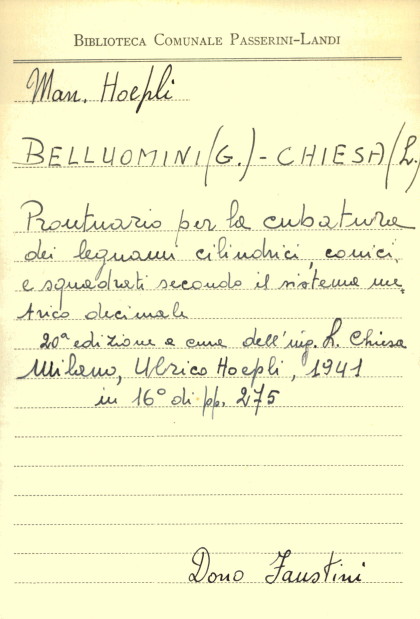 BIBLIOTECA COMUNALE PASSERINI-LANDI
Man. Hoepli
BELLUOMINI (G.) - CHIESA (L.)
Prontuario per la cubatura
dei legnami cilindrici, conici,
e squadrati secondo il sistema me-
trico decimale
20ª edizione a cura dell'ing. L. Chiesa
Milano, Ulrico Hoepli, 1941
in 16° di pp. 275
Dono Faustini